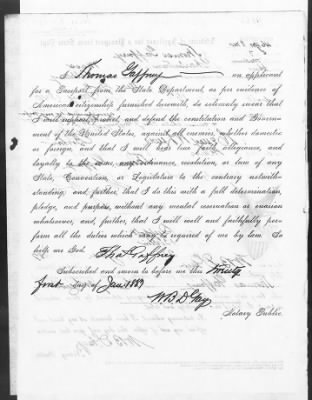 I Thomas Gaffney an applicant
for a Passport from the State Department, as per evidence of
American citizenship furnished herewith, do solemnly swear that
I will support, protect, and defend the constitution and Govern-
ment of the United States, against all enemies, whether domestic
or foreign, and that I will bear true faith, allegiance, and
loyalty to the same, any ordinance, resolution, or law of any
State, Convention, or Legislature to the contrary notwith-
standing; and, further, that I do this with a full determination,
pledge, and purpose, without any mental reservation or evasion
whatsoever, and, further, that I will well and faithfully per-
form all the duties which may be required of me by law. So
help me God.
Thos Gaffney
Subscribed and sworn to before me this twenty
first day of Jan 1889
W B D Gay
Notary Public.